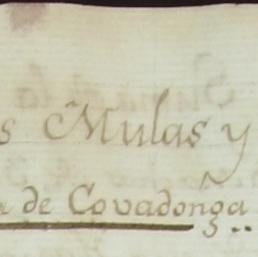 s Mulas y
a de Covadonga